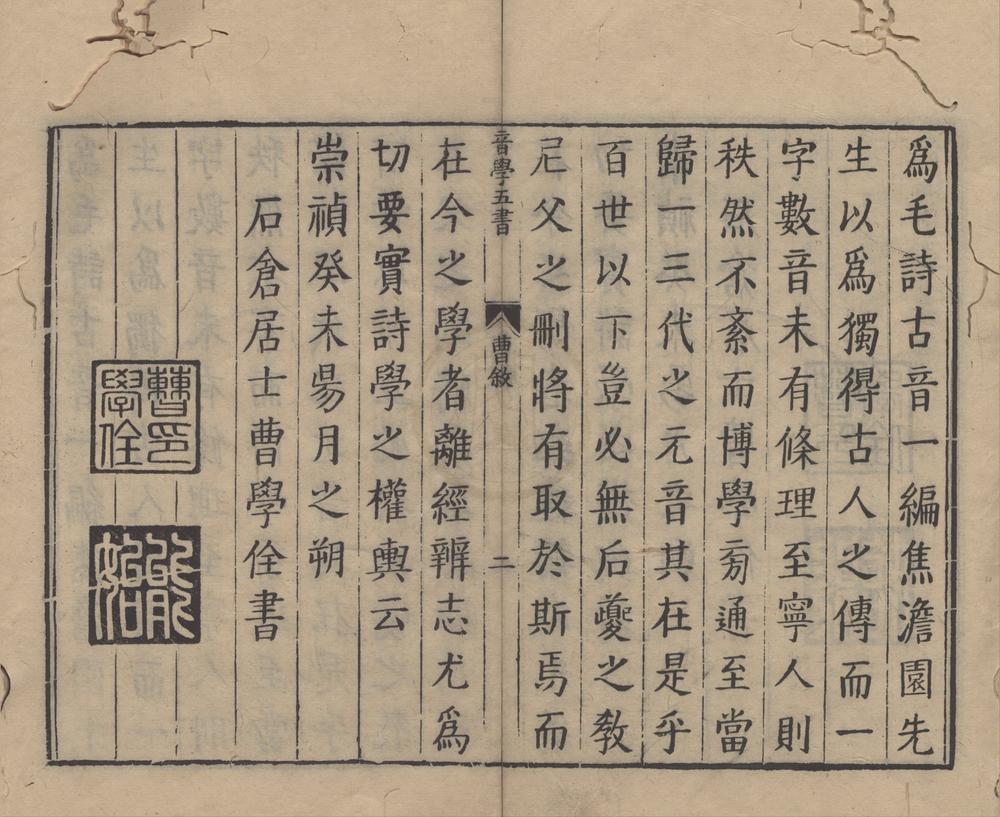 爲毛詩古音一編焦澹園先
生以爲獨得古人之傳而一
字數音未有條理至寧人則
秩然不紊而博學旁通至當
歸一三代之元音其在是乎
百世以下豈必無后夔之教
尼父之刪將有取於斯焉而
音學五書 曹敘 二
在今之學者離經辨志尤爲
切要實詩學之權輿云
崇禎癸未昜月之朔
石倉居士曹學佺書
曹學佺印
能始